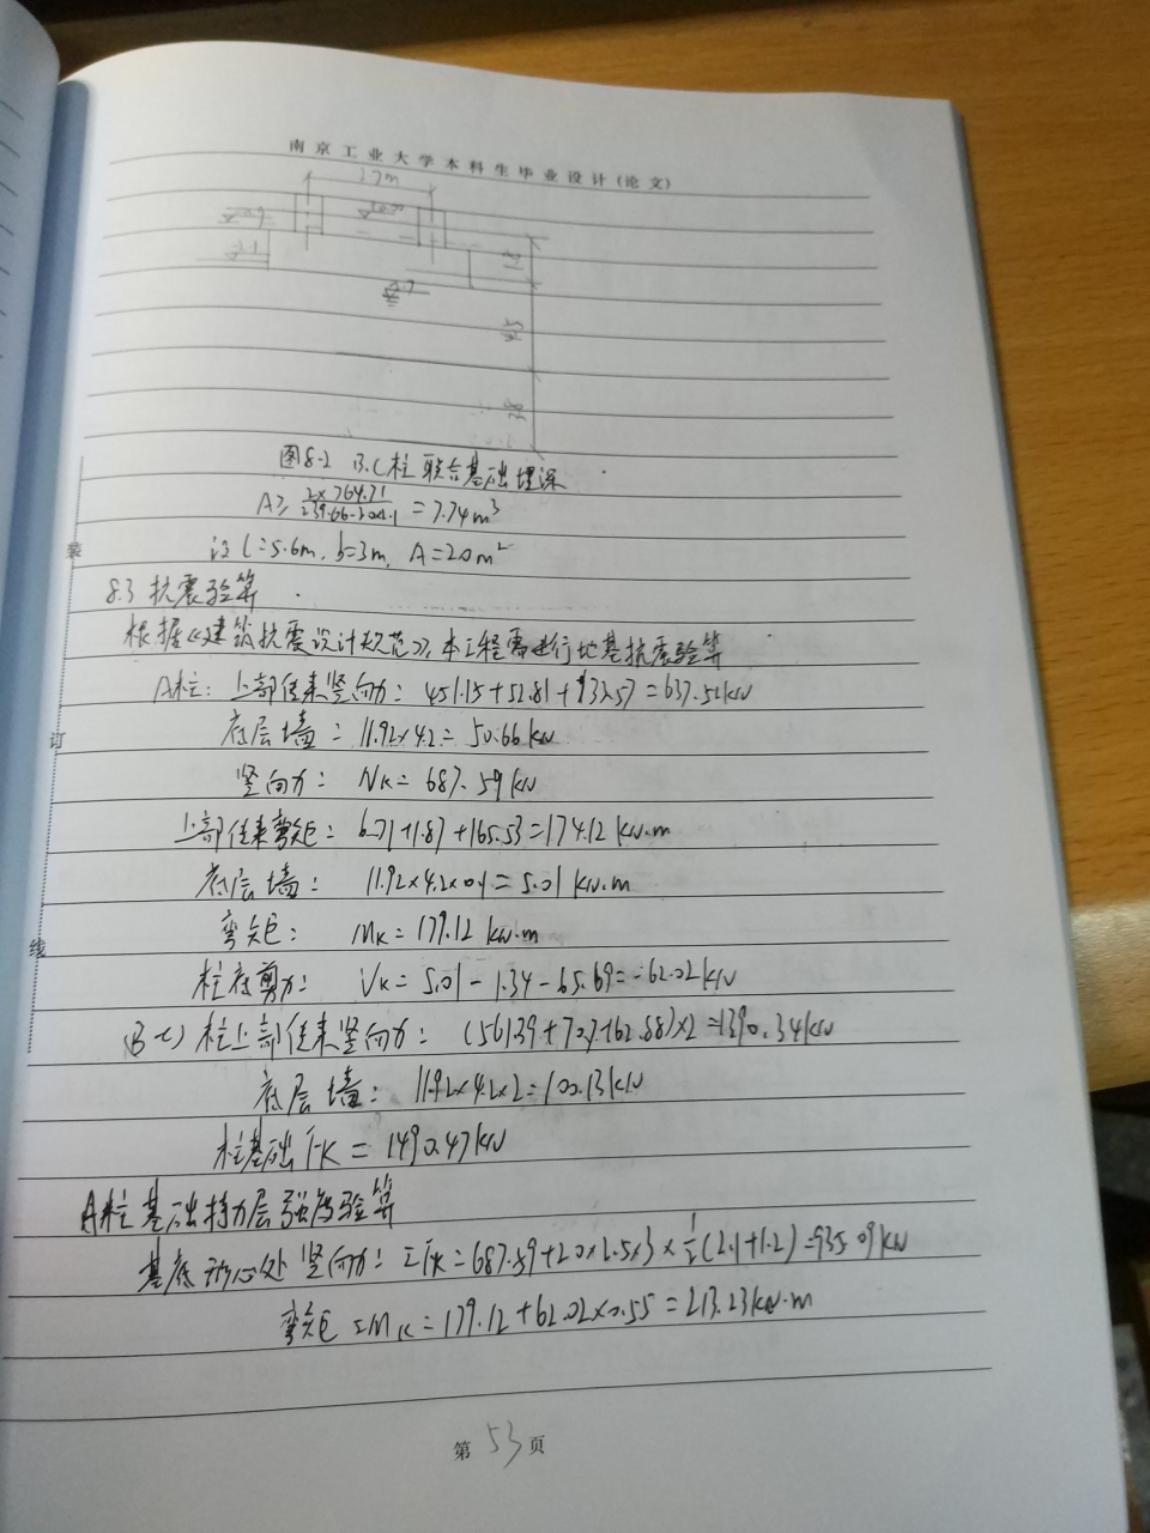 南京工业大学本科生毕业设计(论文)
2.7m
图8-2 B.C柱联合基础埋深
A≥ 2×764.71 / 239.66-20×1.1 = 7.74m³
设 l=5.6m, b=3m, A=20m²
8.3 抗震验算
根据《建筑抗震设计规范》,本工程需进行地基抗震验算
A柱: 上部传来竖向力: 451.15+52.81+132.57=637.52kN
底层墙: 11.92×4.2= 50.66kN
竖向力: Nk= 687.59kN
上部传来弯矩: 6.71+1.87+165.53=174.12 kN.m
底层墙: 11.92×4.2×0.1=5.01 kN.m
弯矩: Mk=179.12 kN.m
柱底剪力: Vk= 5.01-1.34-65.69=-62.02kN
(B C) 柱上部传来竖向力: (561.39+70.7+62.88)×2=1390.34kN
底层墙: 11.92×4.2×2=100.13kN
柱基础 Fk = 1490.47kN
A柱基础持力层强度验算
基底形心处竖向力: ΣFk=687.59+20×2.5×3×1/2(2.1+1.2)=935.09kN
弯矩 ΣMk=179.12+62.02×0.55=213.23kN.m
第 53 页
装
订
线